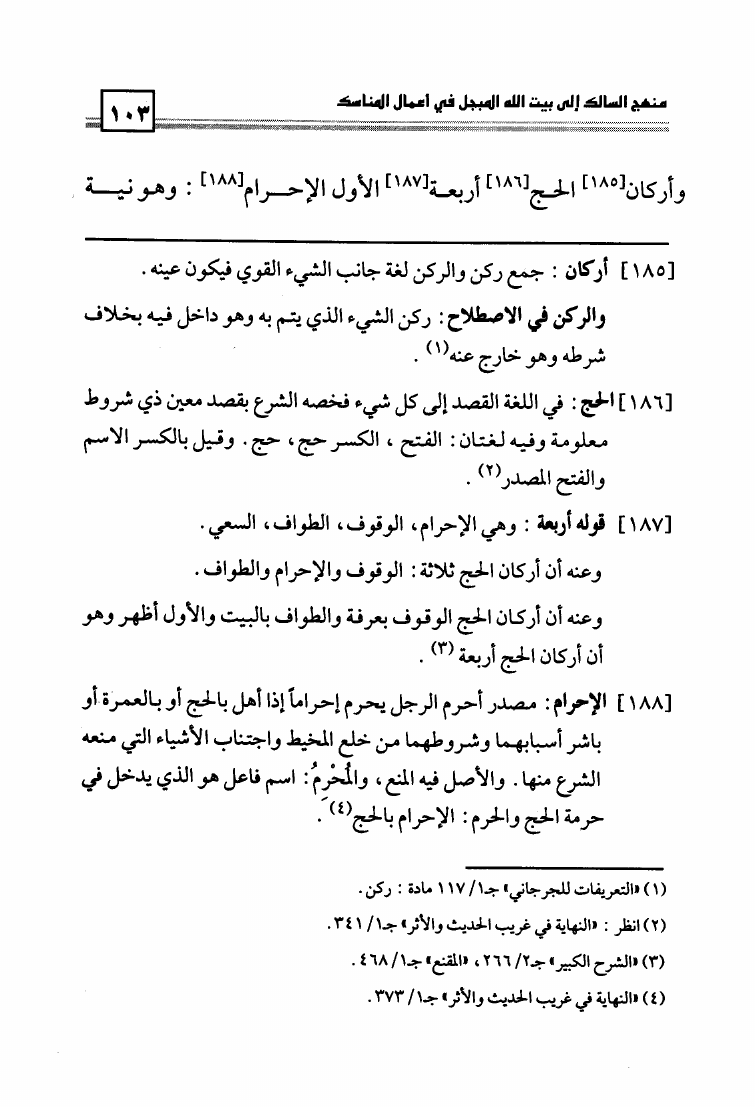 منهج السالك إلى بيت الله المبجل في أعمال المناسك
١٠٣
وأركان[١٨٥] الحـج[١٨٦] أربعـة[١٨٧] الأول الإحـــرام[١٨٨] : وهـو نيـــة
[١٨٥] أركان : جمع ركن والركن لغة جانب الشيء القوي فيكون عينه .
والركن في الاصطلاح : ركن الشيء الذي يتم به وهو داخل فيه بخلاف
شرطه وهو خارج عنه(١) .
[١٨٦] الحج : في اللغة القصد إلى كل شيء فخصه الشرع بقصد معين ذي شروط
معلومة وفيه لغتان : الفتح ، الكسر حج، حج . وقيل بالكسر الاسم
والفتح المصدر(٢) .
[١٨٧] قوله أربعة : وهي الإحرام، الوقوف، الطواف، السعي .
وعنه أن أركان الحج ثلاثة : الوقوف والإحرام والطواف .
وعنه أن أركان الحج الوقوف بعرفة والطواف بالبيت والأول أظهر وهو
أن أركان الحج أربعة (٣) .
[١٨٨] الإحرام : مصدر أحرم الرجل يحرم إحراماً إذا أهل بالحج أو بالعمرة أو
باشر أسبابهما وشروطهما من خلع المخيط واجتناب الأشياء التي منعه
الشرع منها. والأصل فيه المنع ، والمُحْرِمُ : اسم فاعل هو الذي يدخل في
حرمة الحج والحرم : الإحرام بالحج(٤) .
(١) «التعريفات للجرجاني» جـ١/ ١١٧ مادة : ركن .
(٢) انظر : «النهاية في غريب الحديث والأثر» جـ١/ ٣٤١ .
(٣) «الشرح الكبير» جـ٢/ ٢٦٦ ، «المقنع» جـ١/ ٤٦٨ .
(٤) «النهاية في غريب الحديث والأثر» جـ١/ ٣٧٣ .